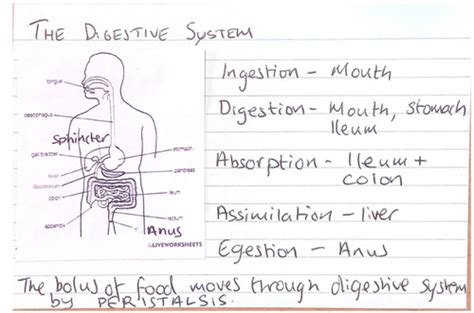 THE DIGESTIVE SYSTEM
tongue
oesophagus
Sphincter
gall bladder
liver
duodenum
colon
appendix
stomach
pancreas
ileum
rectum
Anus
LIVEWORKSHEETS
Ingestion - Mouth
Digestion - Mouth, stomach
Ileum
Absorption - Ileum +
colon
Assimilation - liver
Egestion - Anus
The bolus of food moves through digestive system
by PERISTALSIS.